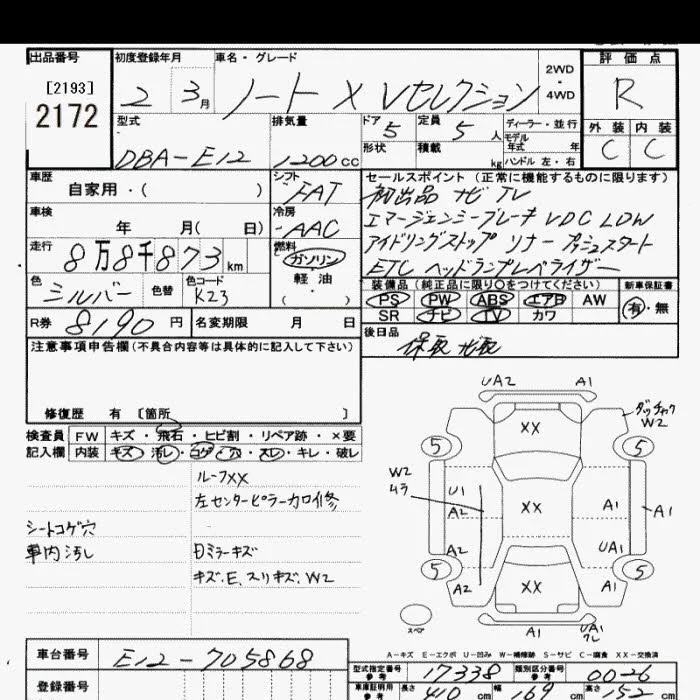 出品番号
[2193]
2172
初度登録年月
2 3月
車名・グレード
ノート X Vセレクション
2WD
・
4WD
評価点
R
外装 内装
C C
型式
DBA-E12
排気量
1200cc
ドア 5
定員 5人
ディーラー・並行
モデル
年式 年
形状
積載 kg
ハンドル 左・右
車歴
自家用・( )
シフト
FAT
セールスポイント (正常に機能するものに限ります)
初出品 ナビ TV
エマージェンシーブレーキ VDC LDW
アイドリングストップ ソナー プッシュスタート
ETC ヘッドランプレベライザー
車検
年 月( 日)
冷房
AAC
走行
8万8千873km
燃料
ガソリン
軽・油
・( )
色
シルバー
色替
色コード
K23
装備品 (純正品に限り○をつけてください)
PS PW ABS エアB AW
SR ナビ TV カワ
新車保証書
有・無
R券 8190円
名変期限 月 日
後日品
保取 ナビ取
注意事項申告欄 (不具合内容等は具体的に記入して下さい)
修復歴 有 〔箇所 〕
検査員 FW キズ・飛石・ヒビ割・リペア跡・×要
記入欄 内装 キズ・汚レ・コゲ・穴・スレ・キレ・破レ
ルーフXX
左センターピラーカロ修
シートコゲ穴
車内汚し
Dミラーキズ
キズ、E、スリキズ、W2
UA2 A1
ダッチャク
W2
XX
5 5
W2
ムラ
U1
A2
XX
A1
A1
A2
UA1
5 5
A2
XX
A1
スペア
A1
UA1
ワレ
A-キズ E-エクボ U-凹み W-補修跡 S-サビ C-腐食 XX-交換済
車台番号 E12-705868
登録番号
型式指定番号
参考
17338
類別区分番号
参考
0026
車庫証明用
参考
長さ 410cm
幅 169cm
高さ 152cm